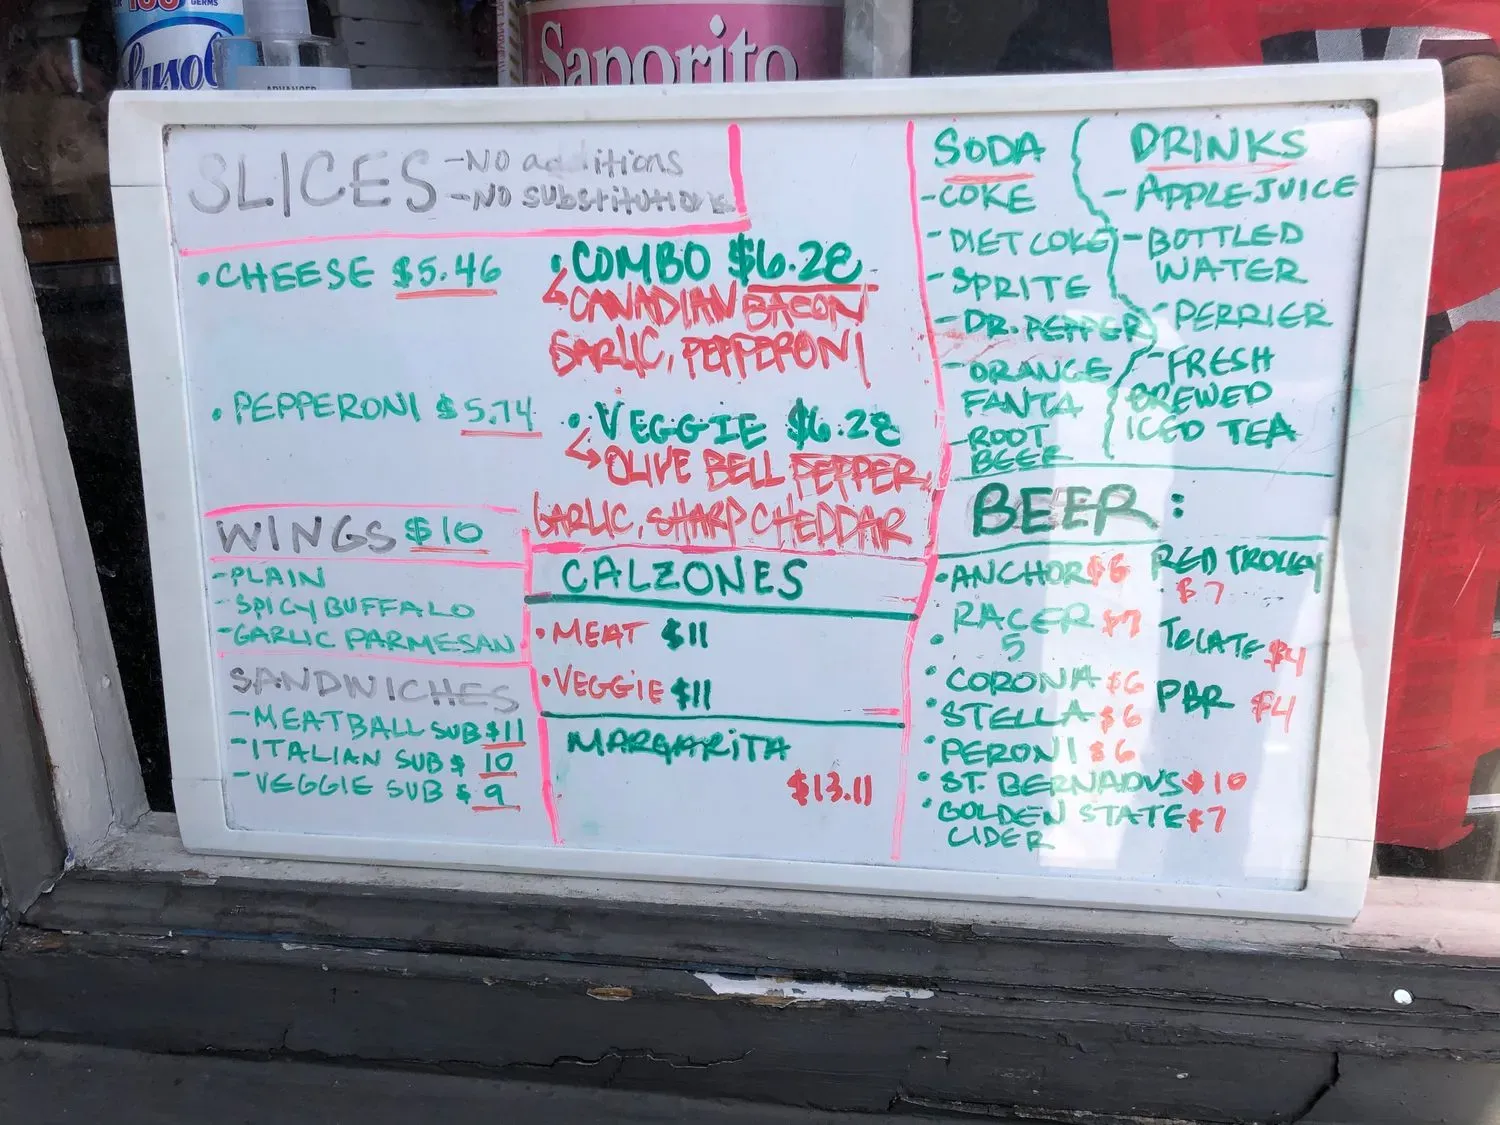 100
GERMS
Lysol
ADVANCED
Saporito
SLICES
-NO additions
-NO substitutions
•CHEESE $5.46
•PEPPERONI $5.74
•COMBO $6.28
CANADIAN BACON
GARLIC, PEPPERONI
•VEGGIE $6.28
OLIVE BELL PEPPER
GARLIC, SHARP CHEDDAR
WINGS $10
-PLAIN
-SPICY BUFFALO
-GARLIC PARMESAN
SANDWICHES
-MEATBALL SUB $11
-ITALIAN SUB $10
-VEGGIE SUB $9
CALZONES
•MEAT $11
•VEGGIE $11
MARGARITA
$13.11
SODA
-COKE
-DIET COKE
-SPRITE
-DR. PEPPER
-ORANGE
FANTA
-ROOT
BEER
DRINKS
-APPLE JUICE
-BOTTLED
WATER
-PERRIER
-FRESH
BREWED
ICED TEA
BEER:
•ANCHOR $6
•RACER $7
5
•CORONA $6
•STELLA $6
•PERONI $6
•ST. BERNADUS $10
•GOLDEN STATE $7
CIDER
RED TROLLEY
$7
TECATE $4
PBR $4